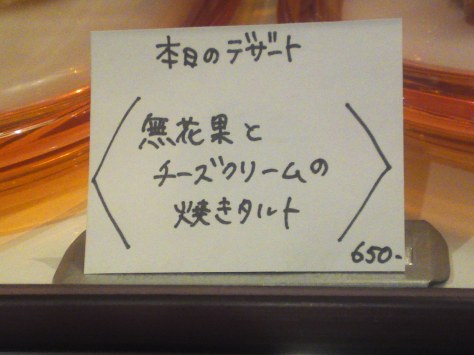 本日のデザート
無花果と
チーズクリームの
焼きタルト
650-